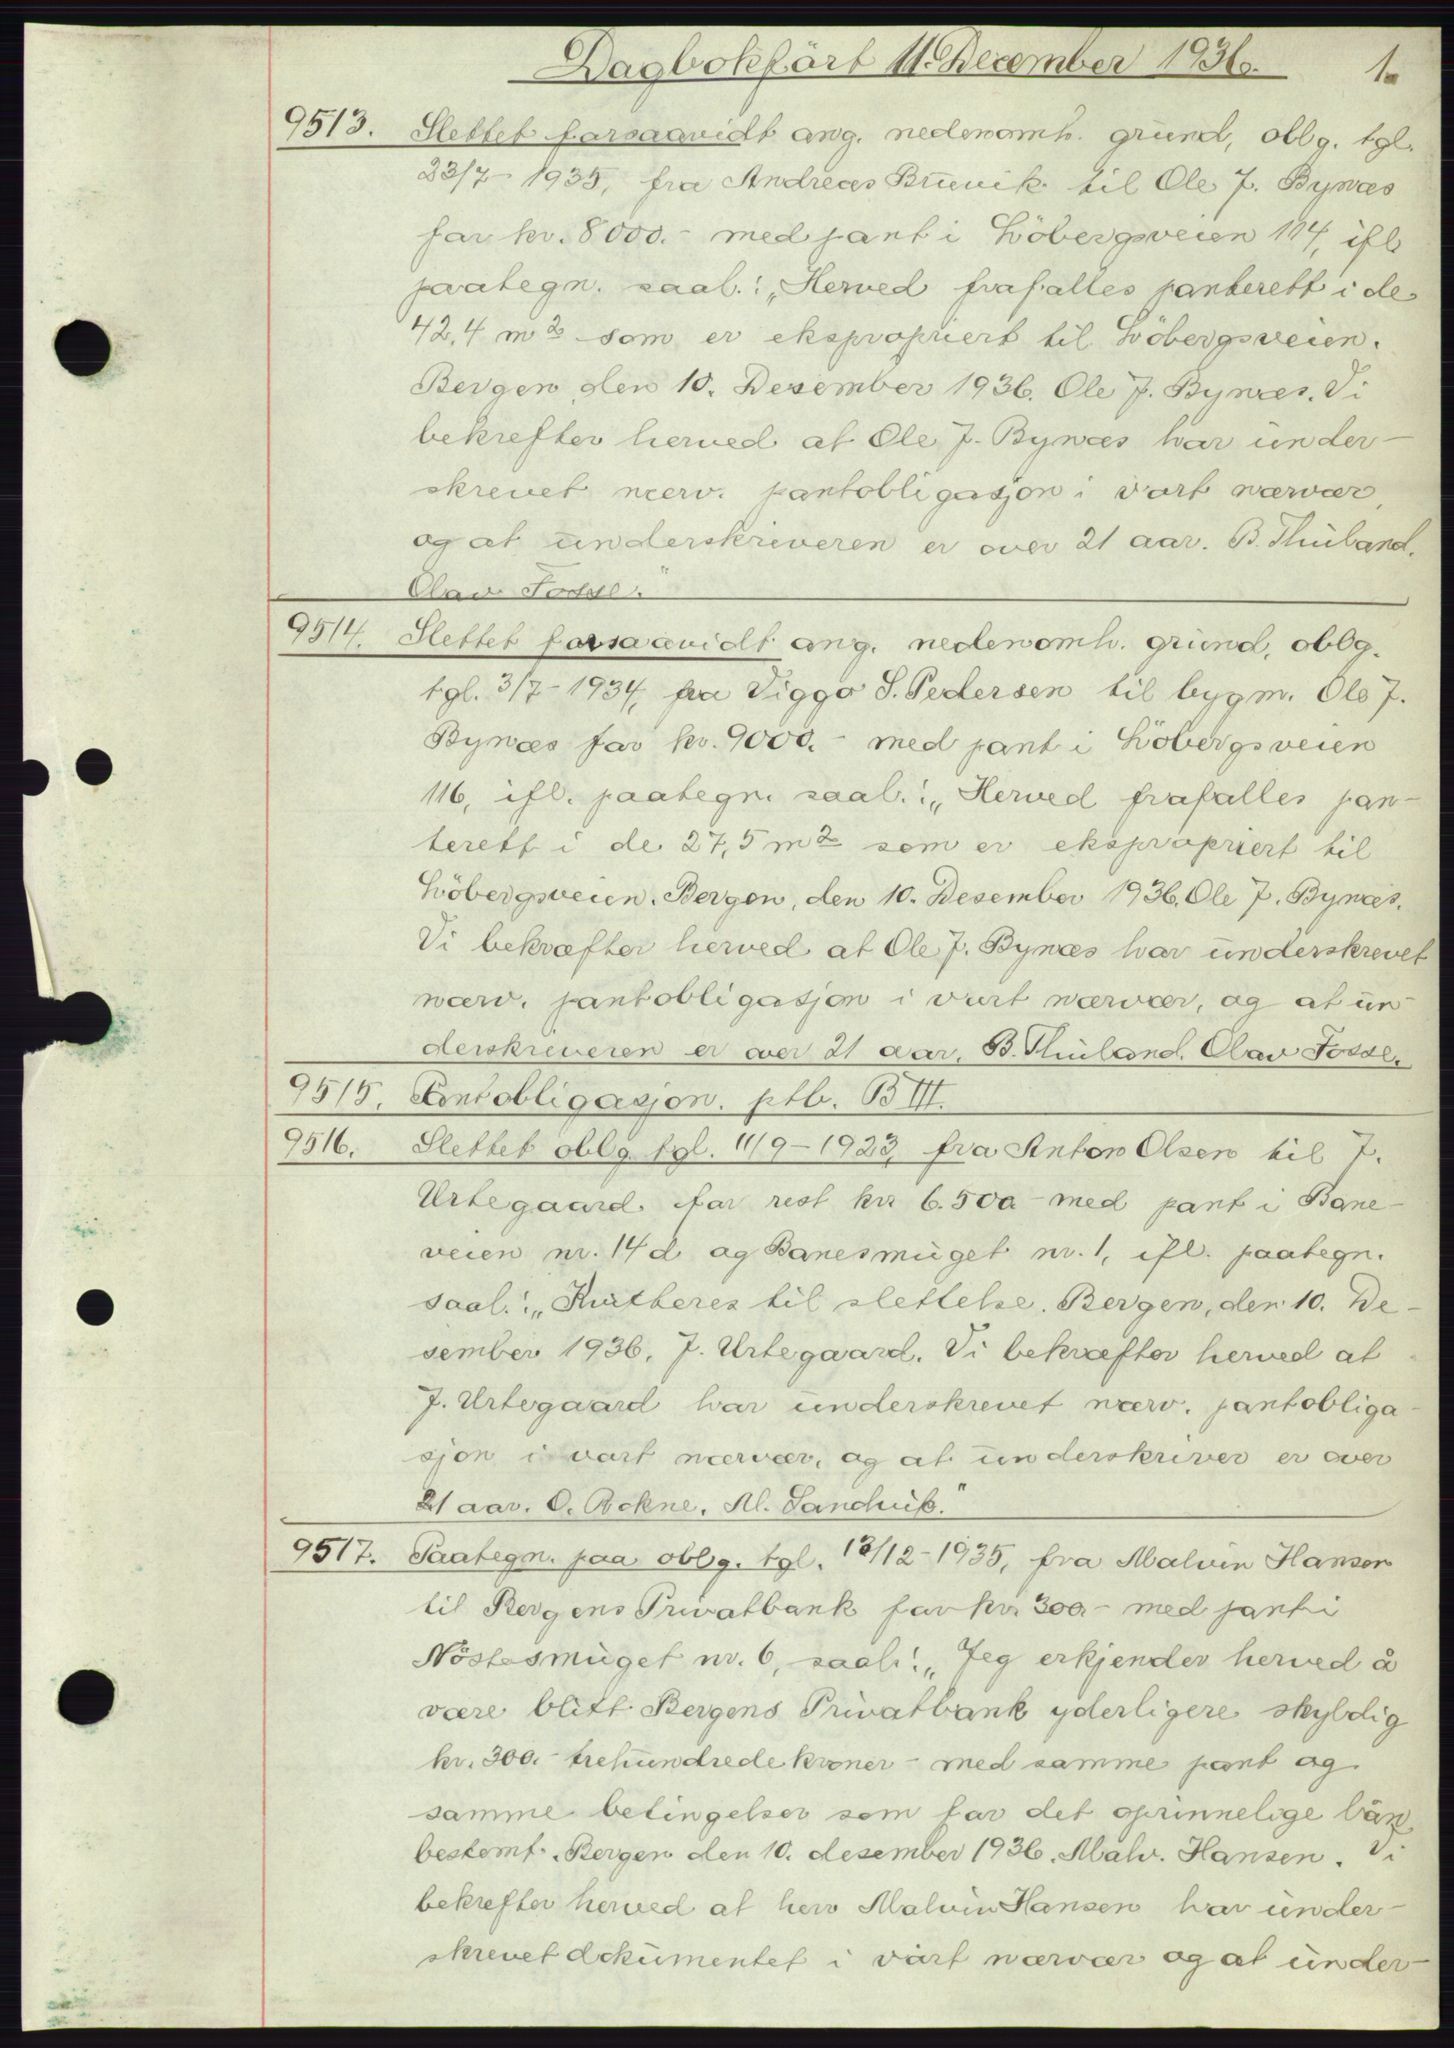 Dagbokført 11. December 1936. 1.
9513. Slettet forsaavidt ang. nedennomh. grund, oblg. tgl.
23/7-1935, fra Andreas Bruvik til Ole J. Bynæs
for kr. 8000.- med pant i Löbergsveien 114, ifl
paategn. saal.: „Herved frafalles panterett i de
42,4 m2 som er ekspropriert til Löbergsveien.
Bergen, den 10. Desember 1936. Ole J. Bynæs. Vi
bekrefter herved at Ole J. Bynæs har under-
skrevet nærv. pantobligasjon i vort nærvær,
og at underskriveren er over 21 aar. B. Thuland.
Olav Fosse."
9514. Slettet forsaavidt ang. nedennomh. grund, oblg.
tgl. 3/7-1934, fra Viggo S. Pedersen til bygm. Ole J.
Bynæs for kr. 9000.- med pant i Löbergsveien
116, ifl. paategn. saal.: „Herved frafalles pan-
terett i de 27,5 m2 som er ekspropriert til
Löbergsveien. Bergen, den 10. Desember 1936. Ole J. Bynæs.
Vi bekræfter herved at Ole J. Bynæs har underskrevet
nærv. pantobligasjon i vort nærvær, og at un-
derskriveren er over 21 aar. B. Thuland. Olav Fosse.
9515. Pantobligasjon. ptb. B III.
9516. Slettet oblg. tgl. 11/9-1923, fra Anton Olsen til J.
Urtegaard. for rest kr 6.500 - med pant i Bane-
veien nr. 14 d og Banesmuget nr. 1, ifl. paategn.
saal.: „Kvitteres til slettelse. Bergen, den 10. De-
sember 1936. J. Urtegaard. Vi bekræfter herved at
J. Urtegaard har underskrevet nærv. pantobliga-
sjon i vort nærvær, og at underskriver er over
21 aar. O. Ackne. Al.
9517. Paategn. paa oblg. tgl. 13/12-1935, fra Malvin Hansen
til Bergens Privatbank for kr. 300.- med pant i
Nöstesmuget nr. 6, saal.: „Jeg erkjender herved å
være blitt Bergens Privatbank yderligere skyldig
kr. 300.- trehundrede kroner - med samme pant og
samme betingelser som for det oprinnelige lån
bestemt. Bergen den 10. desember 1936. Malv. Hansen. Vi
bekrefter herved at herr Malvin Hansen har under-
skrevet dokumentet i vårt nærvær og at under-